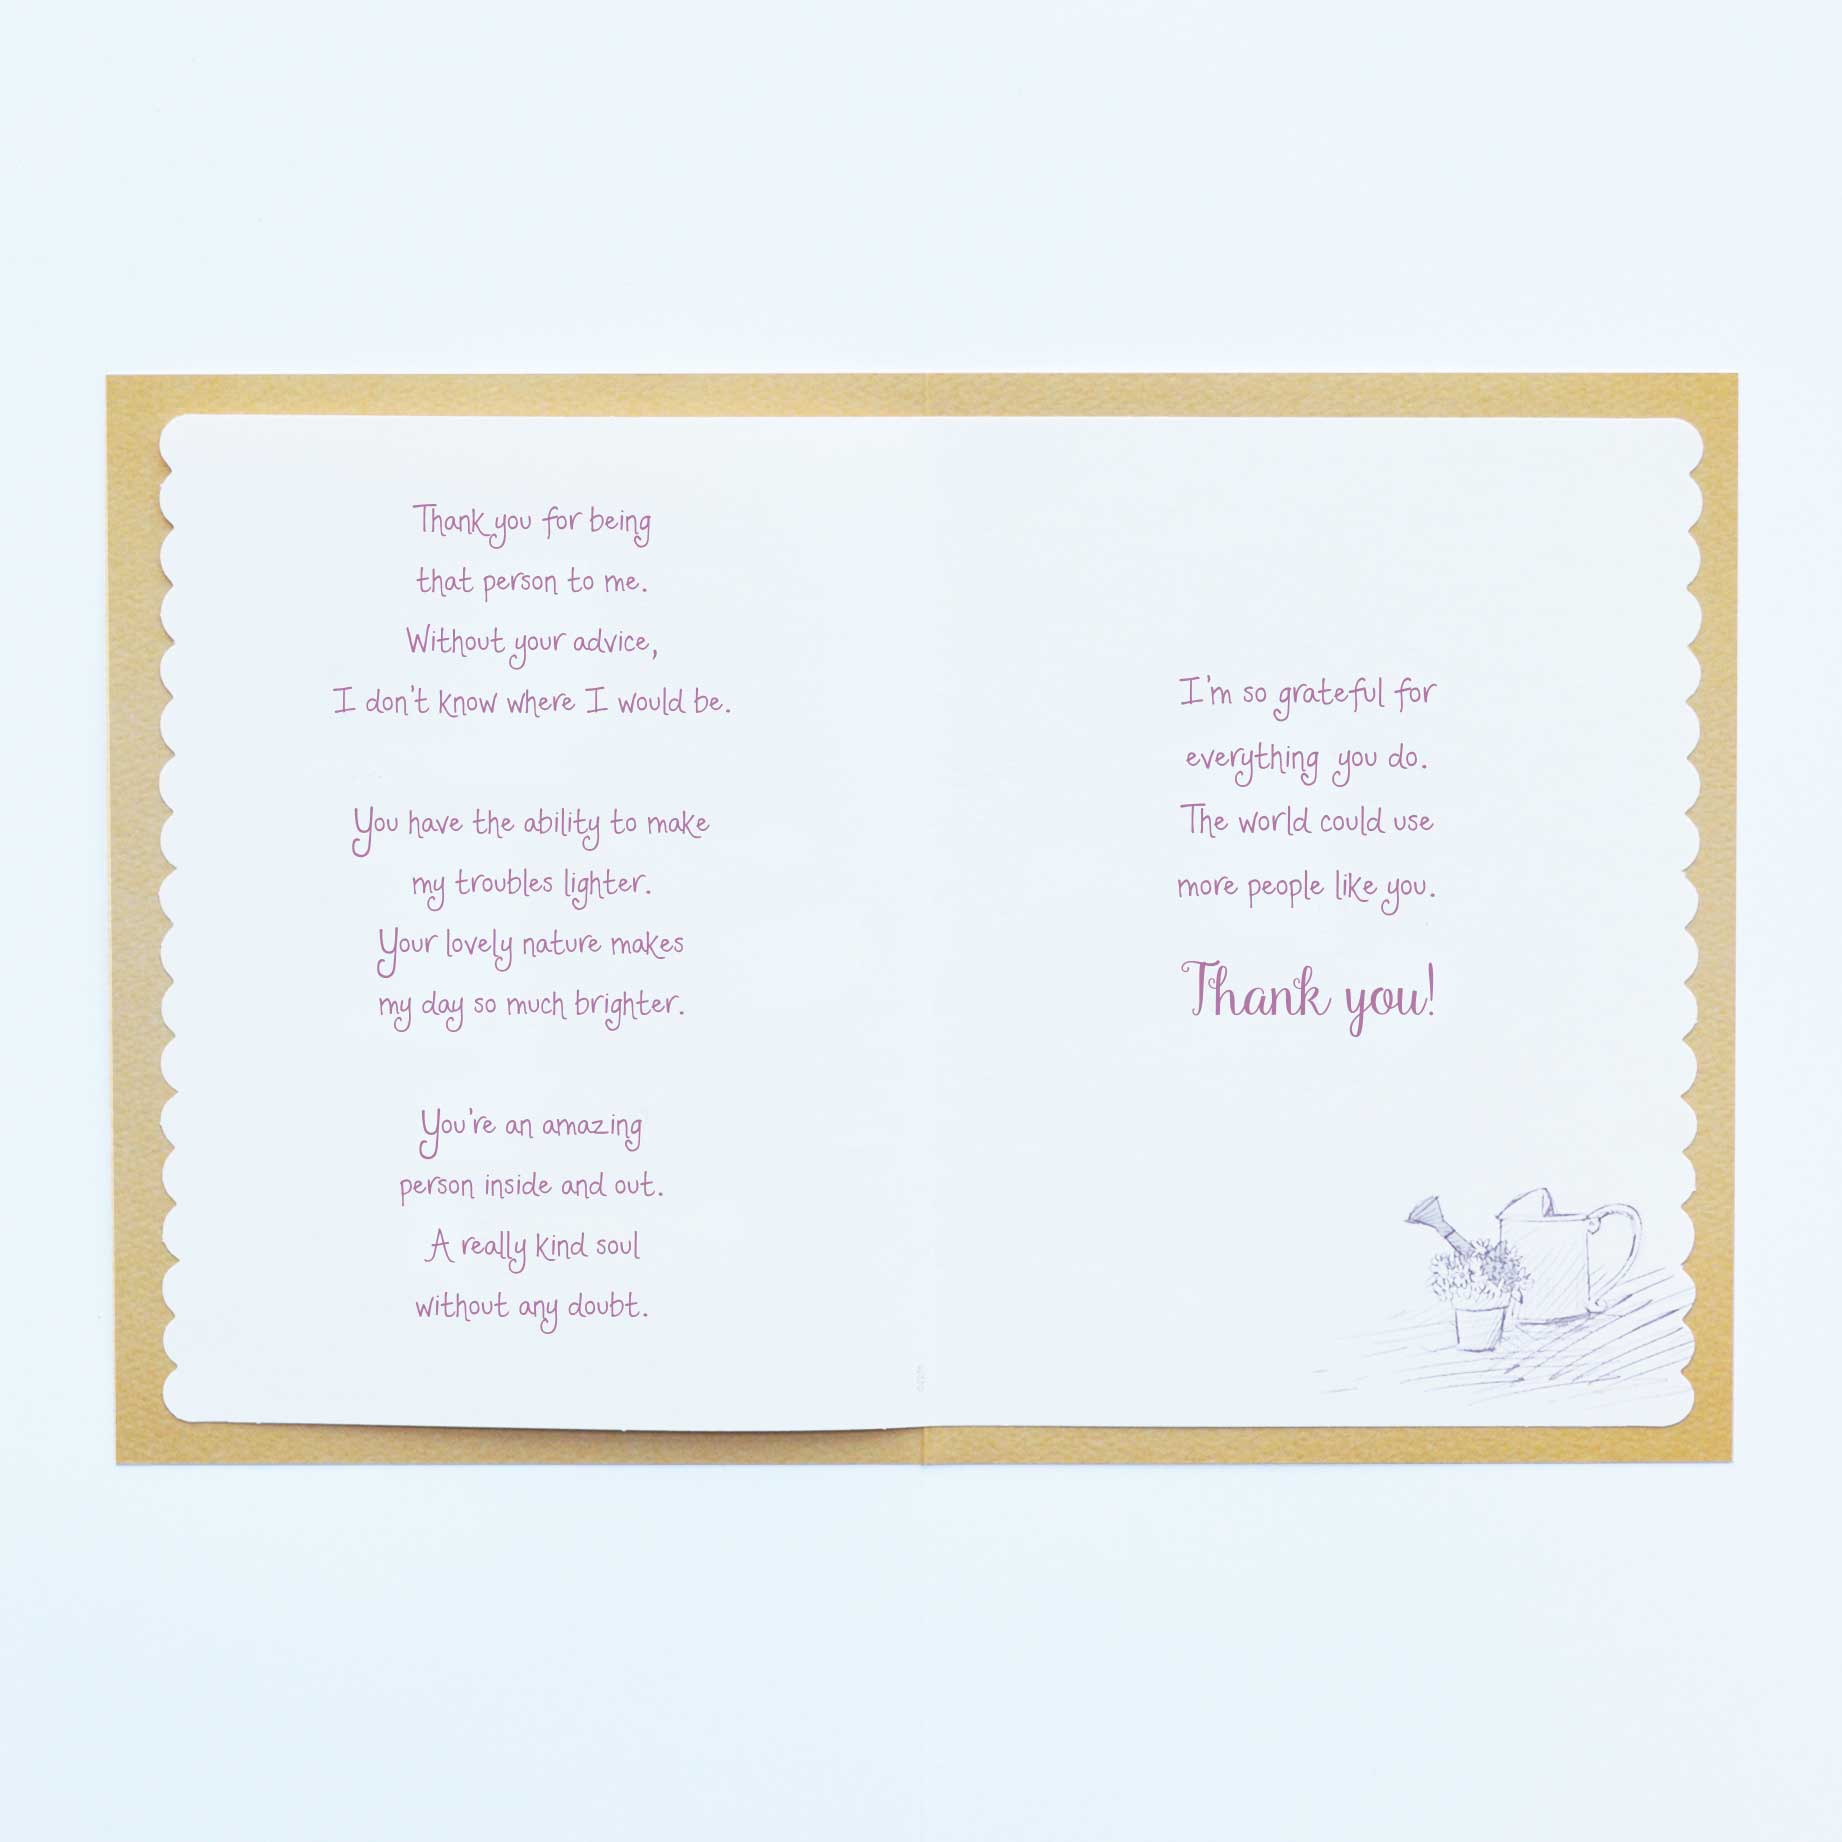 Thank you for being
that person to me.
Without your advice,
I don't know where I would be.
You have the ability to make
my troubles lighter.
Your lovely nature makes
my day so much brighter.
You're an amazing
person inside and out.
A really kind soul
without any doubt.
I'm so grateful for
everything you do.
The world could use
more people like you.
Thank you!